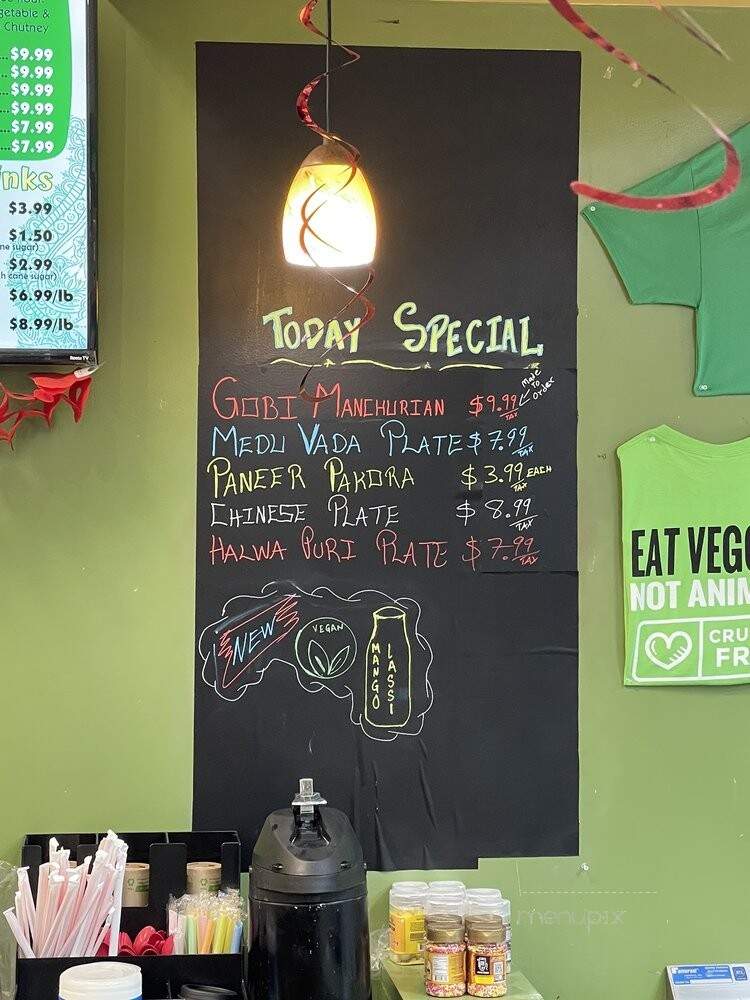 getable &
Chutney
...$9.99
...$9.99
...$9.99
...$9.99
...$7.99
...$7.99
nks
$3.99
$1.50
ne sugar)
$2.99
h cane sugar)
$6.99/lb
$8.99/lb
Roku TV
TODAY SPECIAL
GOBI MANCHURIAN $9.99 TAX MADE TO ORDER
MEDU VADA PLATE $7.99 TAX
PANEER PAKORA $3.99 EACH TAX
CHINESE PLATE $8.99 TAX
HALWA PURI PLATE $7.99 TAX
NEW
VEGAN
MANGO
LASSI
EAT VEGG
NOT ANIM
CRU
FR
menupix